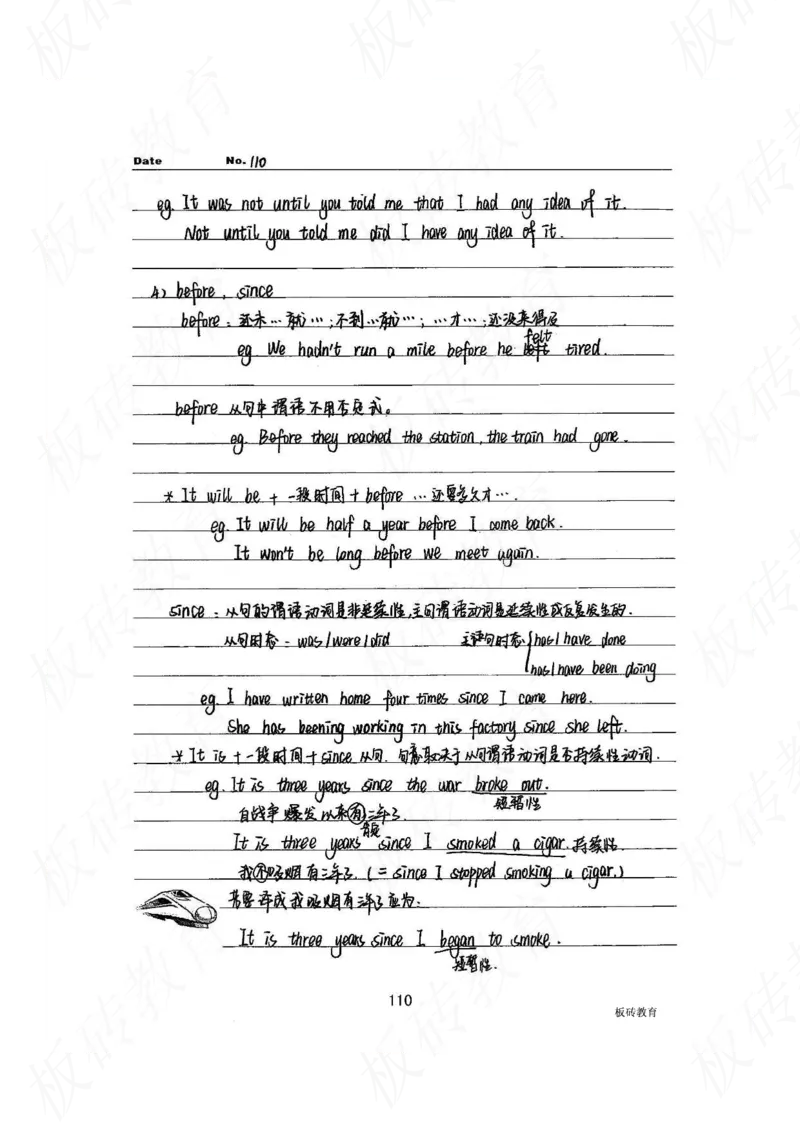 Date No. 110
eg. It was not until you told me that I had any idea of it.
Not until you told me did I have any idea of it.
4) before, since
before: 还未…就…;不到…就…; …才…;还没来得及
eg. We hadn't run a mile before he felt tired.
before 从句中谓语不用否定式。
eg. Before they reached the station, the train had gone.
* It will be + 一段时间 + before …还要多久才….
eg. It will be half a year before I come back.
It won't be long before we meet again.
since: 从句的谓语动词是非延续性,主句谓语动词是延续性或反复发生的.
从句时态: was/were/did 主句时态 { has/have done
has/have been doing
eg. I have written home four times since I came here.
She has beening working in this factory since she left.
* It is + 一段时间 + since 从句. 句意取决于从句谓语动词是否持续性动词.
eg. It is three years since the war broke out.
短暂性
自战争爆发以来有三年了.
It is three years since I smoked a cigar. 持续性.
我不吸烟有三年了. (= since I stopped smoking a cigar.)
若要译成我吸烟有三年了应为.
It is three years since I began to smoke.
短暂性.
110
板砖教育